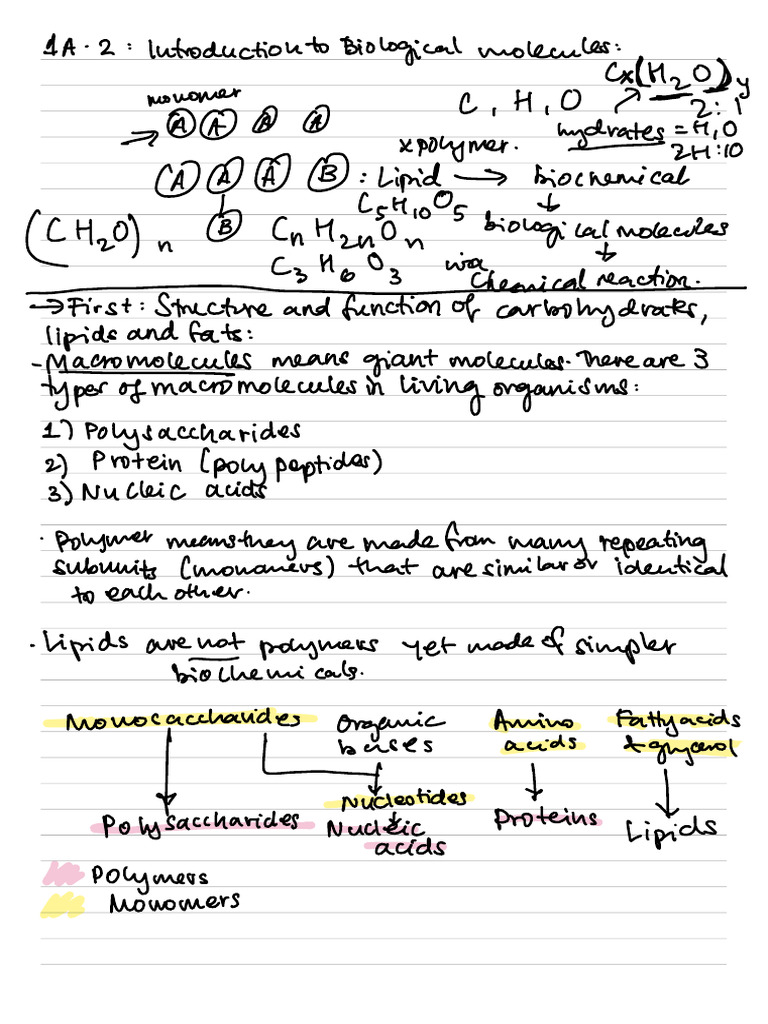 1A.2: Introduction to Biological molecules:
monomer
C, H, O
Cx(H2O)y
2:1
A A A A
x polymer.
hydrates = H2O
2H:1O
A A A B : Lipid → Biochemical
B
C5H10O5
biological molecules
(CH2O)n
CnH2nOn
C3H6O3
via
Chemical reaction.
→ First: Structure and function of carbohydrates,
lipids and fats:
- Macromolecules means giant molecules. There are 3
types of macromolecules in living organisms:
1) Polysaccharides
2) Protein (polypeptides)
3) Nucleic acids
· Polymer means they are made from many repeating
subunits (monomers) that are similar or identical
to each other.
· Lipids are not polymers yet made of simpler
biochemicals.
Monosaccharides
Organic
bases
Amino
acids
Fatty acids
+ glycerol
Nucleotides
Polysaccharides
Nucleic
acids
Proteins
Lipids
Polymers
Monomers